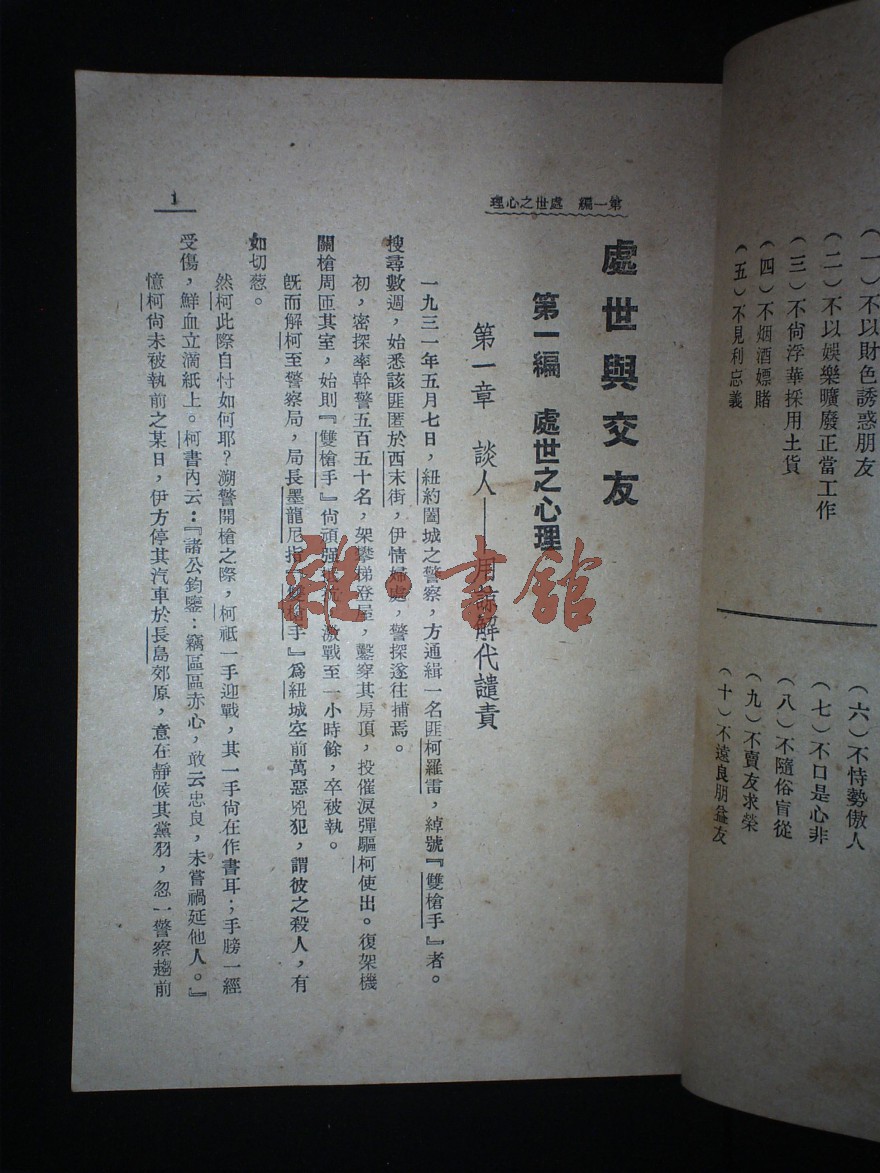 (一)不以財色誘惑朋友
(二)不以娛樂曠廢正當工作
(三)不尙浮華採用土貨
(四)不烟酒嫖賭
(五)不見利忘義
(六)不恃勢傲人
(七)不口是心非
(八)不隨俗盲從
(九)不賣友求榮
(十)不遠良朋益友
第一編 處世之心理
處世與交友
第一編 處世之心理
第一章 談人——用諒解代譴責
一九三一年五月七日,紐約闔城之警察,方通緝一名匪柯羅雷,綽號『雙槍手』者。
搜尋數週,始悉該匪匿於西末街,伊情婦處,警探遂往捕焉。
初,密探率幹警五百五十名,架攀梯登屋,鑿穿其房頂,投催淚彈驅柯使出。復架機
關槍周匝其室,始則『雙槍手』尙頑强 激戰至一小時餘,卒被執。
旣而解柯至警察局,局長墨龍尼指『雙槍手』爲紐城空前萬惡兇犯,謂彼之殺人,有
如切葱。
然柯此際自忖如何耶?溯警開槍之際,柯祇一手迎戰,其一手尙在作書耳;手膀一經
受傷,鮮血立滴紙上。柯書內云:『諸公鈞鑒:竊區區赤心,敢云忠良,未嘗禍延他人。』
憶柯尙未被執前之某日,伊方停其汽車於長島郊原,意在靜候其黨羽,忽一警察趨前
1
雜·書館